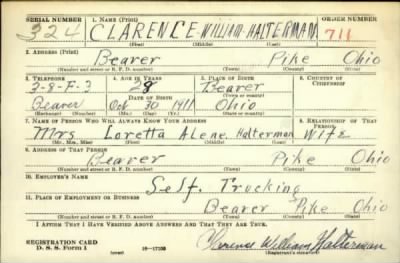 SERIAL NUMBER 1. NAME (Print) ORDER NUMBER
324 CLARENCE WILLIAM HALTERMAN 711
(First) (Middle) (Last)
2. ADDRESS (Print)
Beaver Pike Ohio
(Number and street or R. F. D. number) (Town) (County) (State)
3. TELEPHONE 4. AGE IN YEARS 5. PLACE OF BIRTH 6. COUNTRY OF CITIZENSHIP
3-8-F-3 28 Beaver
DATE OF BIRTH (Town or county)
Beaver Oct 30 1911 Ohio
(Exchange) (Number) (Mo.) (Day) (Yr.) (State or country)
7. NAME OF PERSON WHO WILL ALWAYS KNOW YOUR ADDRESS 8. RELATIONSHIP OF THAT PERSON
Mrs Loretta Alene Halterman Wife
(Mr., Mrs., Miss) (First) (Middle) (Last)
9. ADDRESS OF THAT PERSON
Beaver Pike Ohio
(Number and street or R. F. D. number) (Town) (County) (State)
10. EMPLOYER'S NAME
Self. Trucking
11. PLACE OF EMPLOYMENT OR BUSINESS
Beaver Pike Ohio
(Number and street or R. F. D. number) (Town) (County) (State)
I AFFIRM THAT I HAVE VERIFIED ABOVE ANSWERS AND THAT THEY ARE TRUE.
REGISTRATION CARD Clarence William Halterman
D. S. S. Form 1 (over) (Registrant's signature)